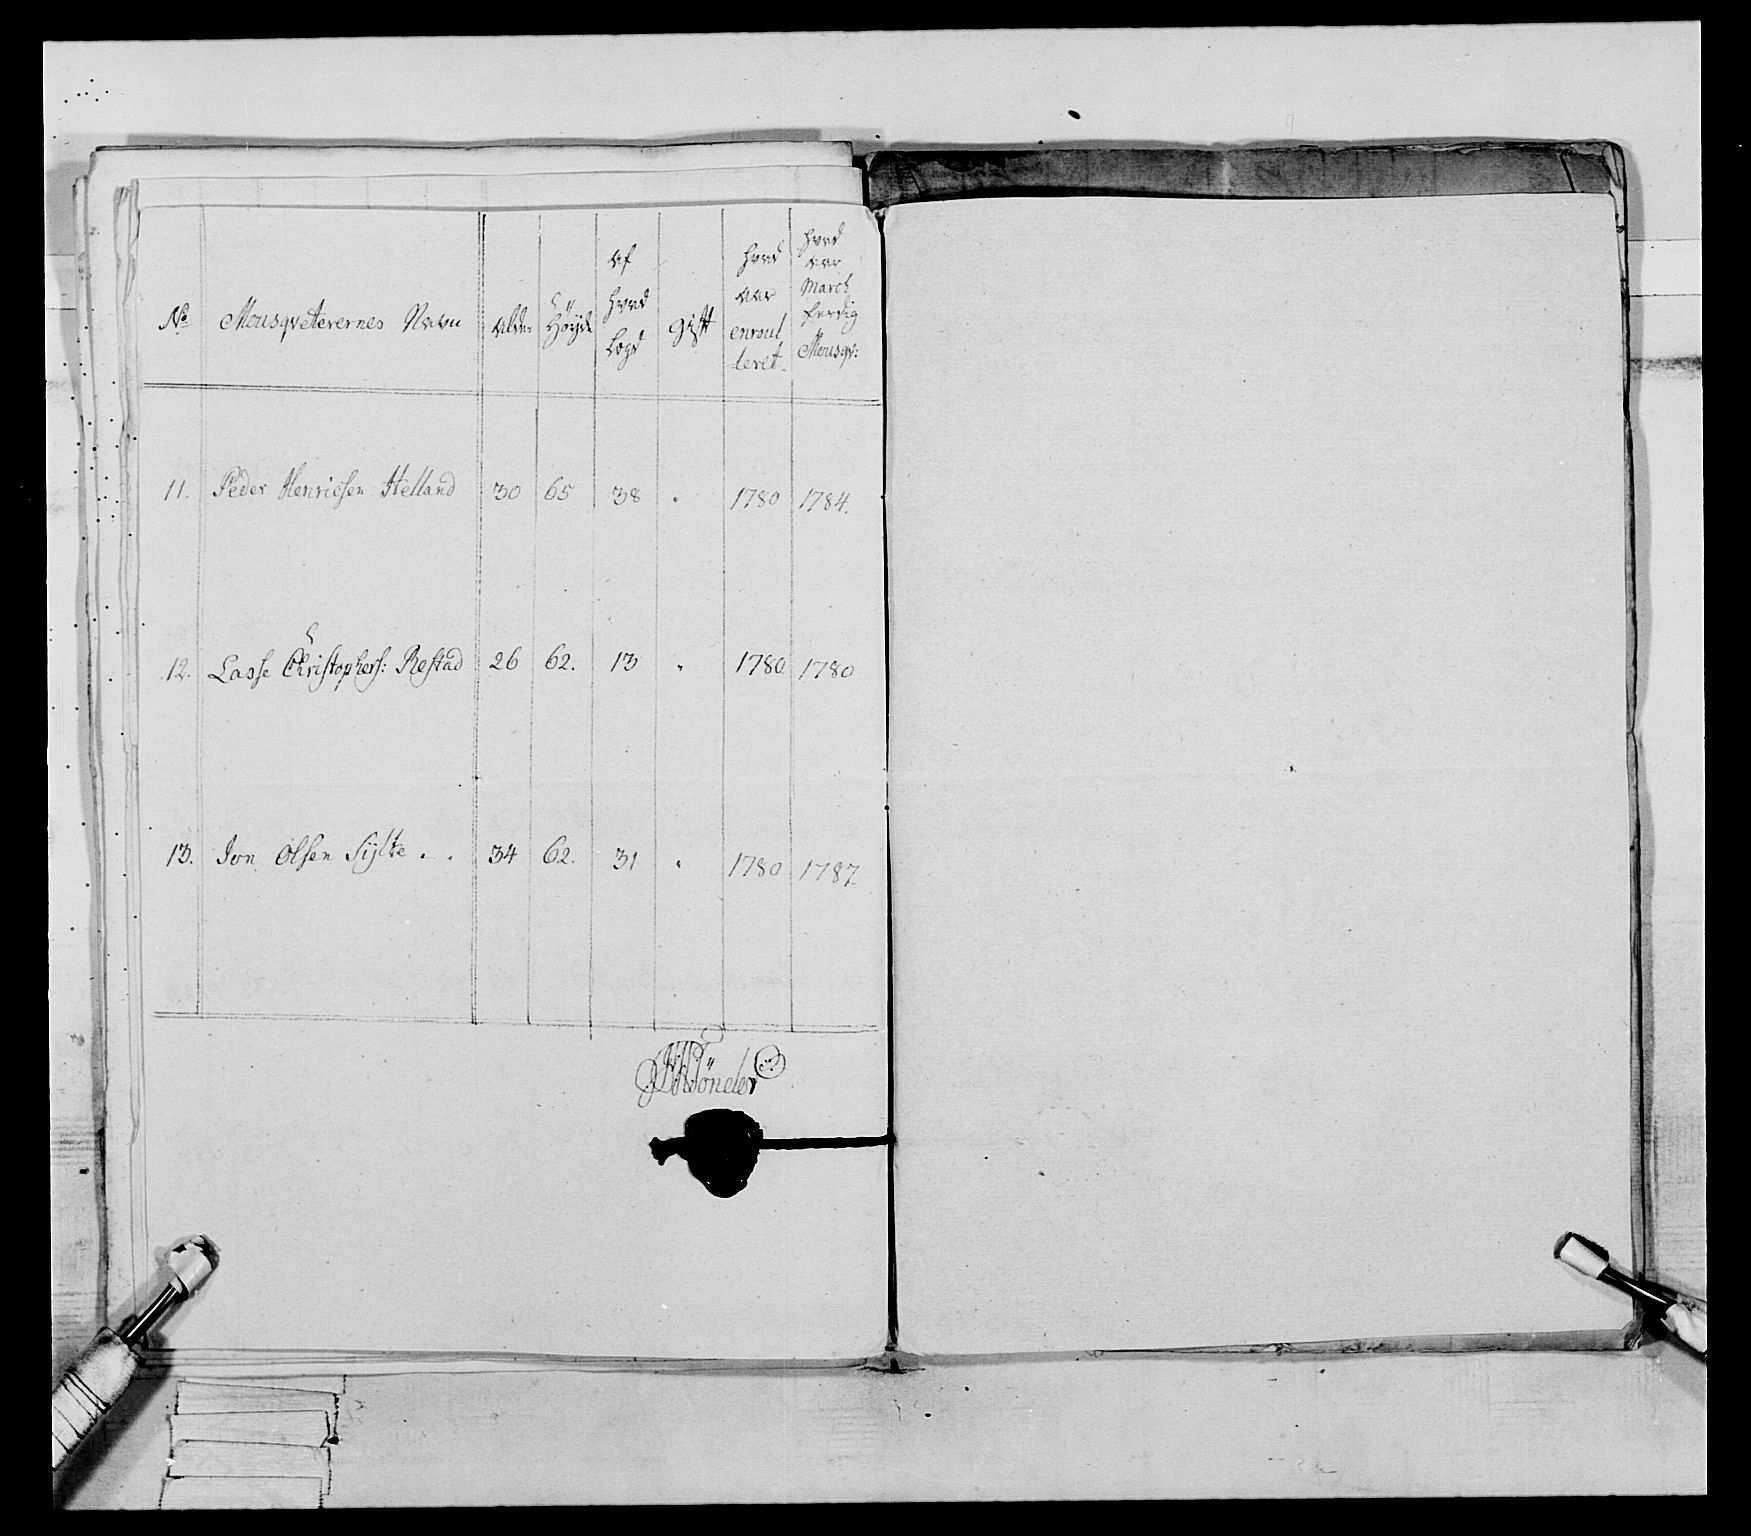 No Mousqveterernes Navn Alder Höyde af hvad Logd gift hvad aar enroulleret hvad aar March ferdig Mousqv:
11. Peder Henricsen Helland 30 65 38 " 1780 1784.
12. Lasse Christophers: Restad 26 62. 13 " 1780. 1780
13. Jon Olsen Sylte . . 34 62. 31 " 1780 1787.